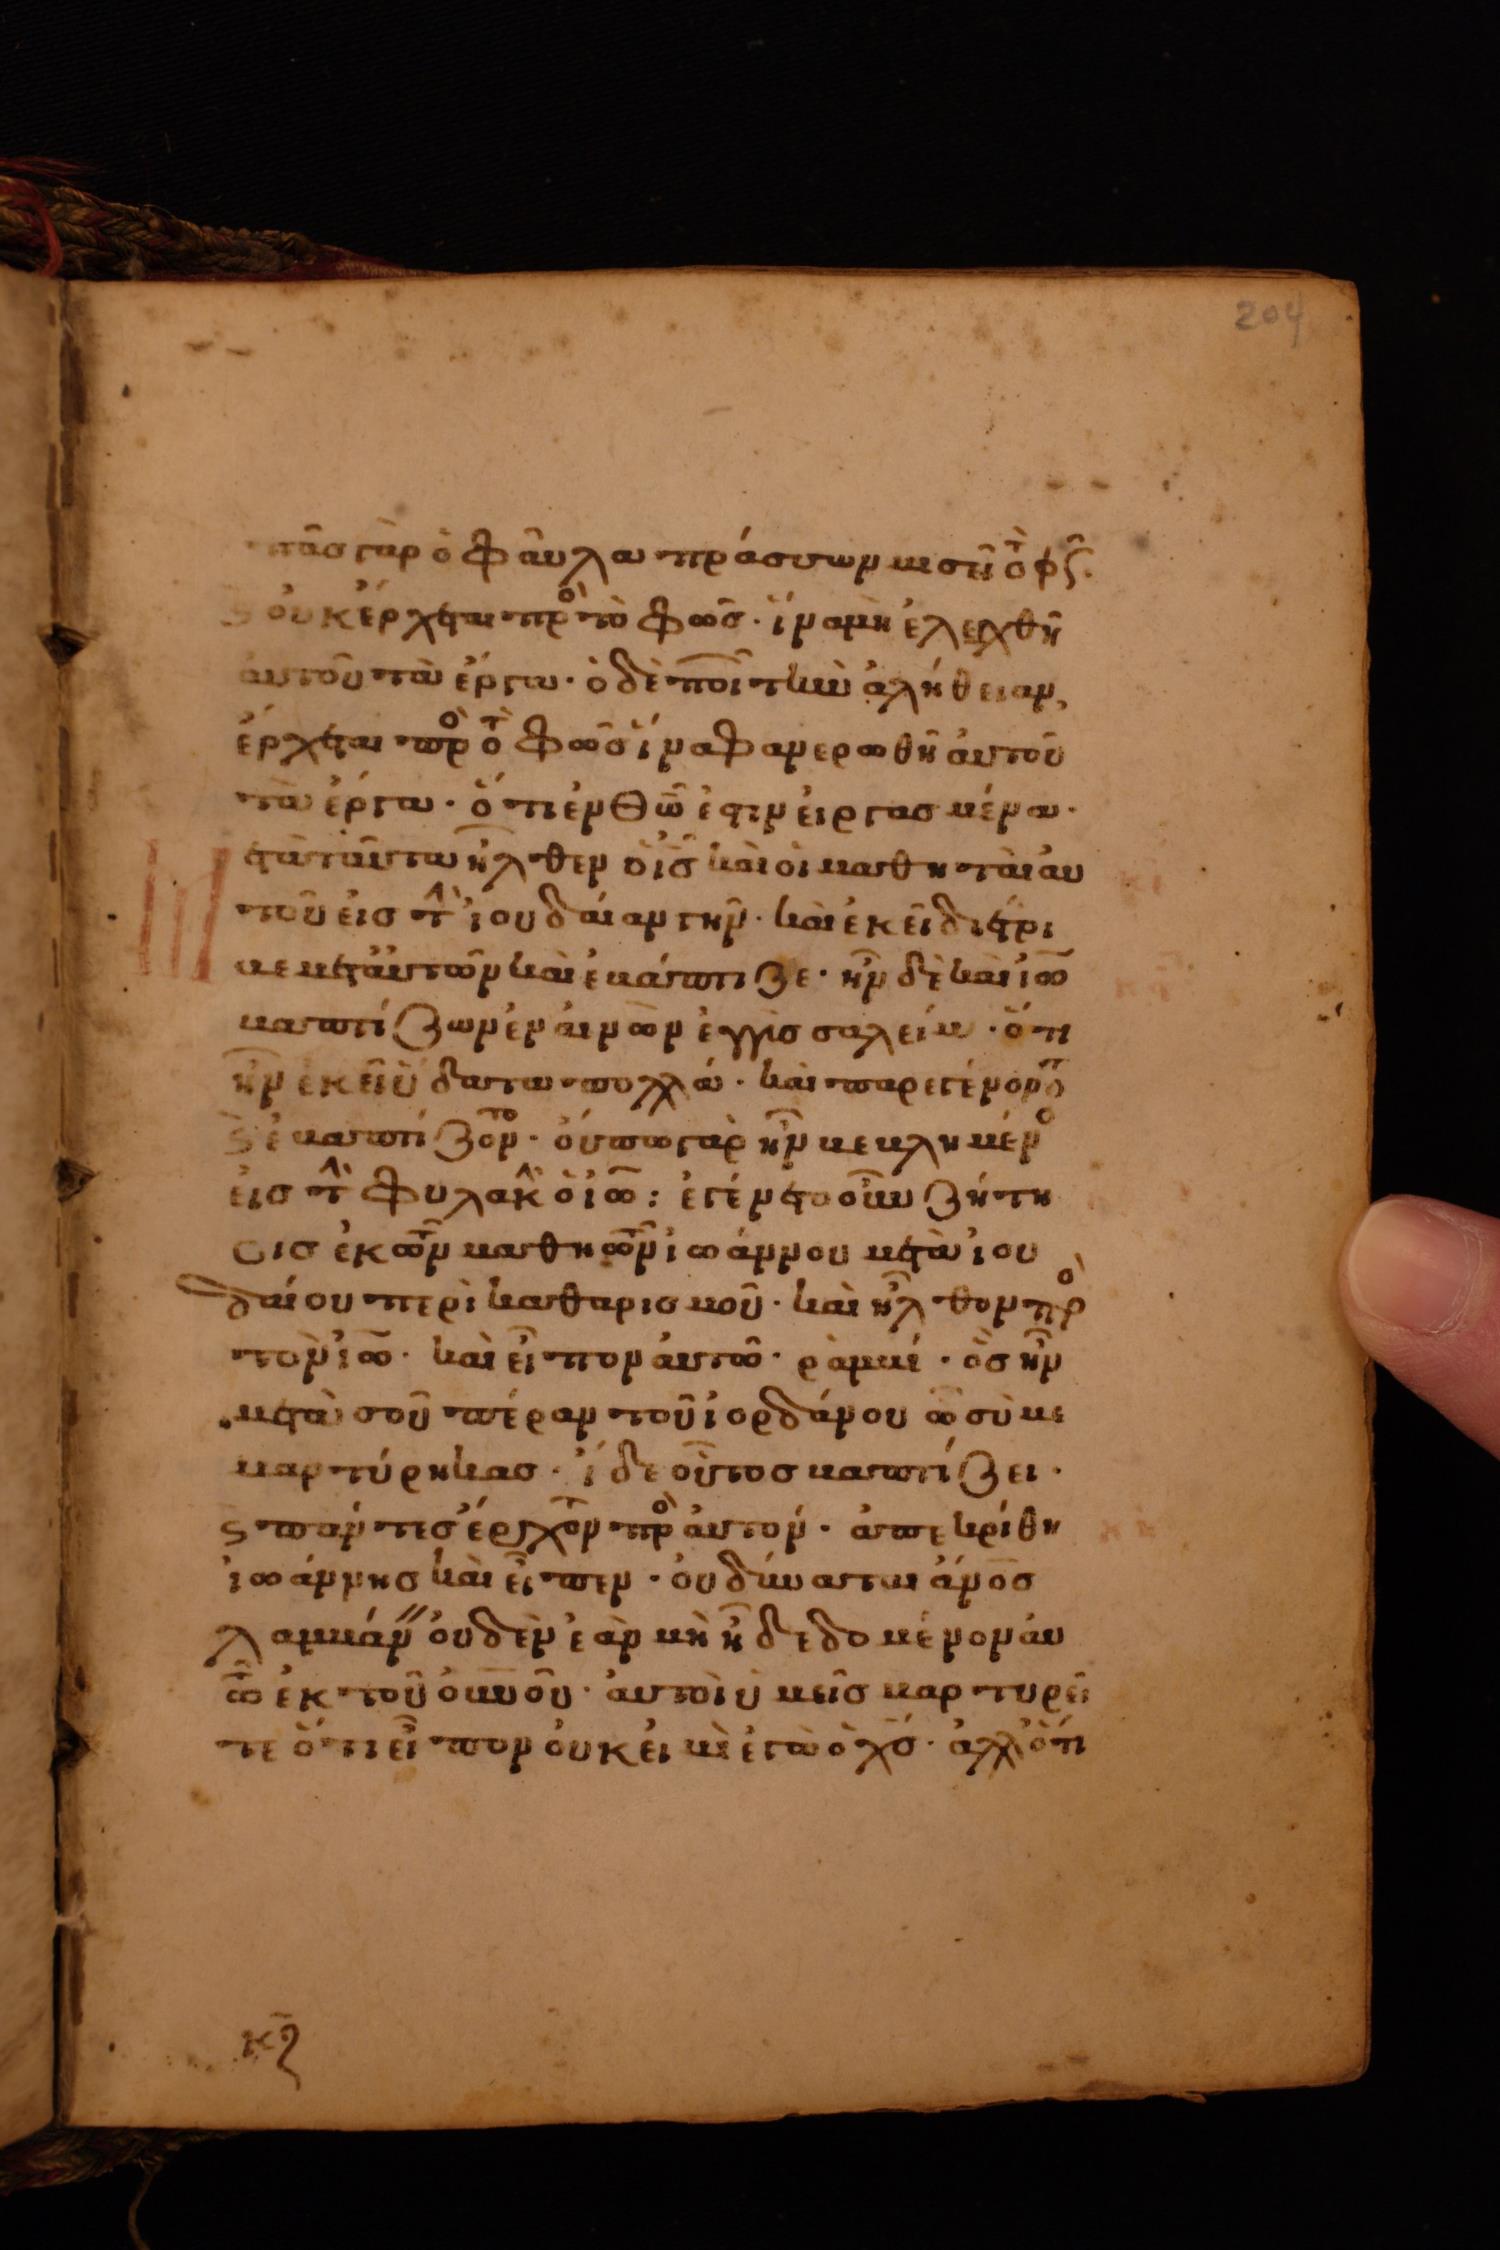 204
πᾶσ γὰρ ὁ φᾶυλα πράσσων μισεῖ τὸ φῶς.
ϗ ὀυκ ἔρχεται πρὸς τὸ φῶσ· ἵνα μὴ ἐλεχθῆ
ἀυτοῦ τὰ ἔργα· ὁ δὲ ποιῶν τὴν ἀλήθειαν,
ἔρχεται πρὸς τὸ φῶσ ἵνα φανερωθῆ ἀυτοῦ
τὰ ἔργα· ὅτι ἐν Θῶ ἐστιν ἐιργασμένα·
μετὰ ταῦτα ἦλθεν ὁ ις̅ καὶ ὁι μαθηταὶ ἀυ
τοῦ ἐισ τὴν ἰουδαίαν γῆν· καὶ ἐκεῖ διέτρι
βε μετἀυτῶν καὶ ἐβάπτιζε· ἦν δὲ καὶ ἰω̅
βαπτίζων ἐν ἀινὼν ἐγγὺσ σαλείμ· ὅτι
ἦν ἐκεῖ ὕδατα πολλά· καὶ παρεγένοντο
ϗ ἐβαπτίζοντο· ὄυπω γὰρ ἦν βεβλημένος
ἐισ τὴν φυλακὴν ὁ ἰω̅: ἐγένετο οὖν ζήτη
σισ ἐκ τῶν μαθητῶν ἰωάννου μετὰ ἰου
δαίου περὶ καθαρισμοῦ· καὶ ἦλθον πρὸς
τὸν ἰω̅· καὶ εἶπον ἀυτῶ· ραββί· ὃσ ἦν
μετὰ σοῦ πέραν τοῦ ἰορδάνου ὧ σὺ με
μαρτύρηκασ· ἴδε οὗτοσ βαπτίζει·
ϗ πάντεσ ἔρχονται πρὸς ἀυτόν· ἀπεκρίθη
ἰωάννησ καὶ εἶπεν· ὀυ δύναται ἄνο̅σ
λαμβάνειν ὀυδὲν ἐὰν μὴ ἦ δεδομένον ἀυ
τῶ ἐκ τοῦ ὀυνοῦ· ἀυτοὶ ὑμεῖσ μαρτυρεῖ
τε ὅτι εἶπον ὀυκ ἐιμὶ ἐγὼ ὁ χσ̅· ἀλλὅτι
κζ